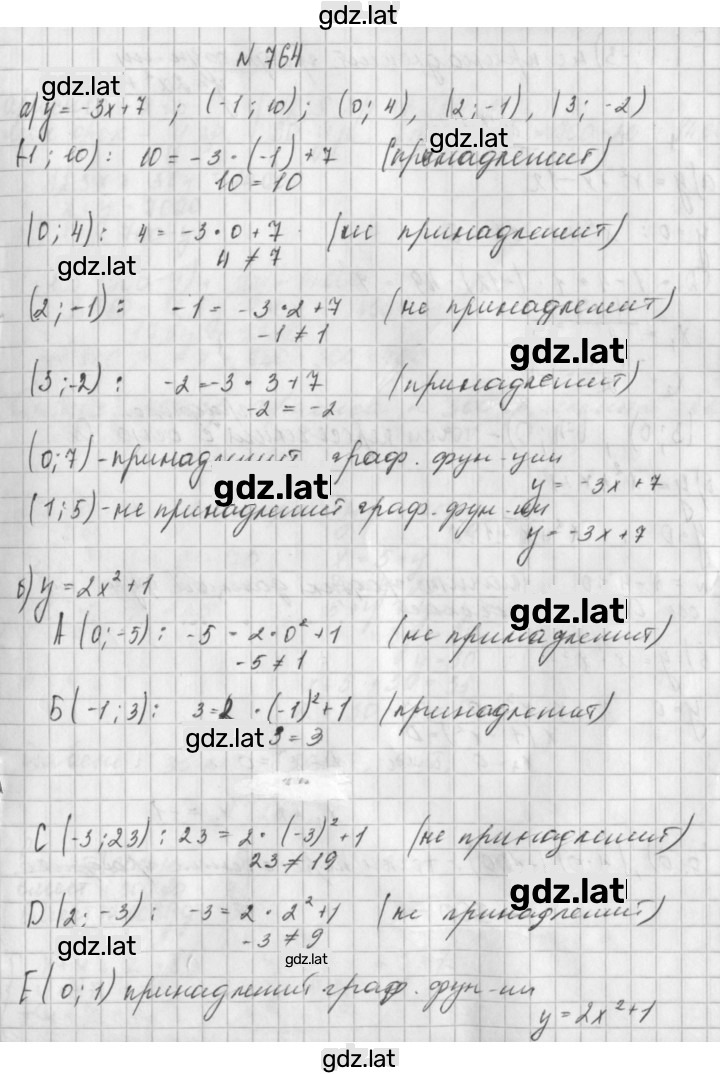 gdz.lat
N 764
gdz.lat
а) y = -3x+7 ; (-1; 10); (0; 4), (2; -1), (3; -2)
gdz.lat
(-1; 10): 10 = -3·(-1)+7 (принадлежит)
10 = 10
(0; 4): 4 = -3·0+7 (не принадлежит)
4 ≠ 7
gdz.lat
(2; -1): -1 = -3·2+7 (не принадлежит)
-1 ≠ 1
gdz.lat
(3; -2): -2=-3·3+7 (принадлежит)
-2 = -2
(0; 7) - принадлежит граф. фун-ции
y = -3x+7
gdz.lat
(1; 5) - не принадлежит граф. фун-ии
y = -3x+7
б) y = 2x²+1
gdz.lat
A (0; -5): -5 = 2·0²+1 (не принадлежит)
-5 ≠ 1
Б (-1; 3): 3=2·(-1)²+1 (принадлежит)
gdz.lat
3 = 3
C (-3; 23): 23 = 2·(-3)²+1 (не принадлежит)
23 ≠ 19
gdz.lat
D (2; -3): -3 = 2·2²+1 (не принадлежит)
-3 ≠ 9
gdz.lat
gdz.lat
E (0; 1) принадлежит граф. фун-ии
y = 2x²+1
gdz.lat